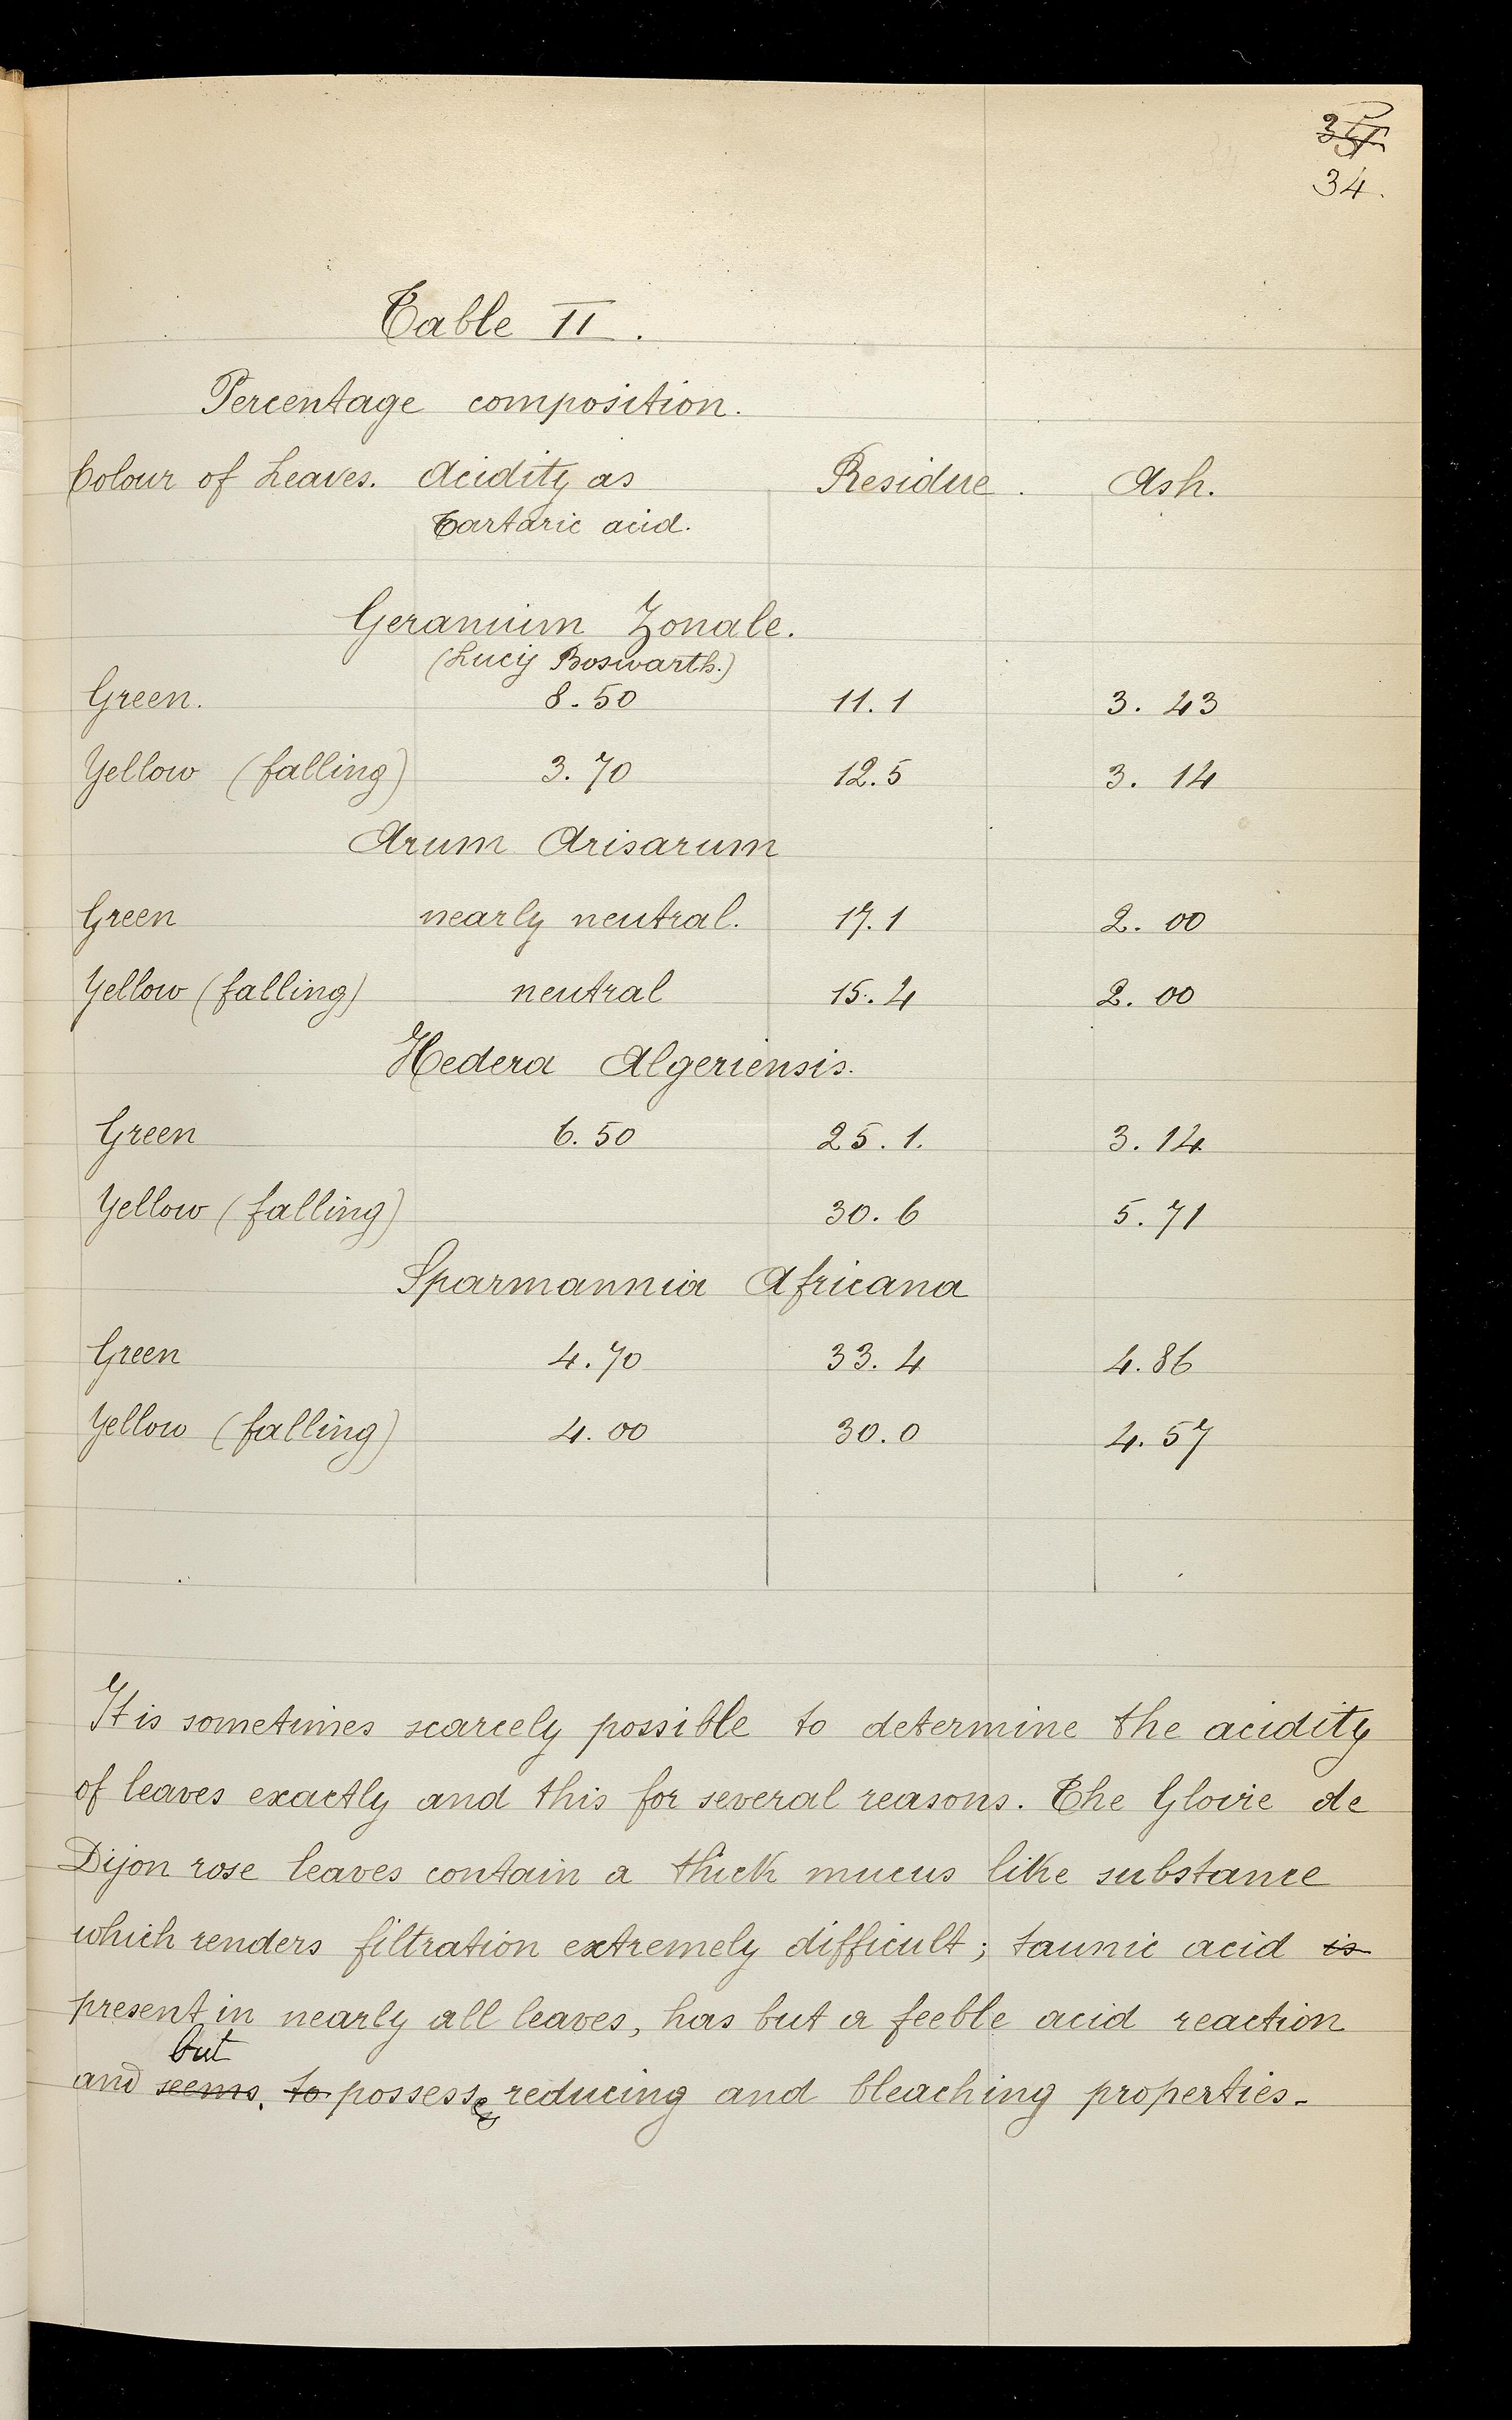 34.
Table II.
Percentage composition.
Colour of Leaves. Acidity as Residue. Ash.
Tartaric acid.
Geranium Zonale.
(Lucy Boswarth.)
Green. 8.50 11.1 3.43
Yellow (falling) 3.70 12.5 3.14
Arum Arisarum
Green nearly neutral. 17.1 2.00
Yellow (falling) neutral 15.4 2.00
Hedera Algeriensis.
Green 6.50 25.1. 3.14
Yellow (falling) 30.6 5.71
Sparmannia Africana
Green 4.70 33.4 4.86
Yellow (falling) 4.00 30.0 4.57
It is sometimes scarcely possible to determine the acidity
of leaves exactly and this for several reasons. The Gloire de
Dijon rose leaves contain a thick mucus like substance
which renders filtration extremely difficult; tannic acid is
present in nearly all leaves, has but a feeble acid reaction
but
and seems to possesses reducing and bleaching properties.